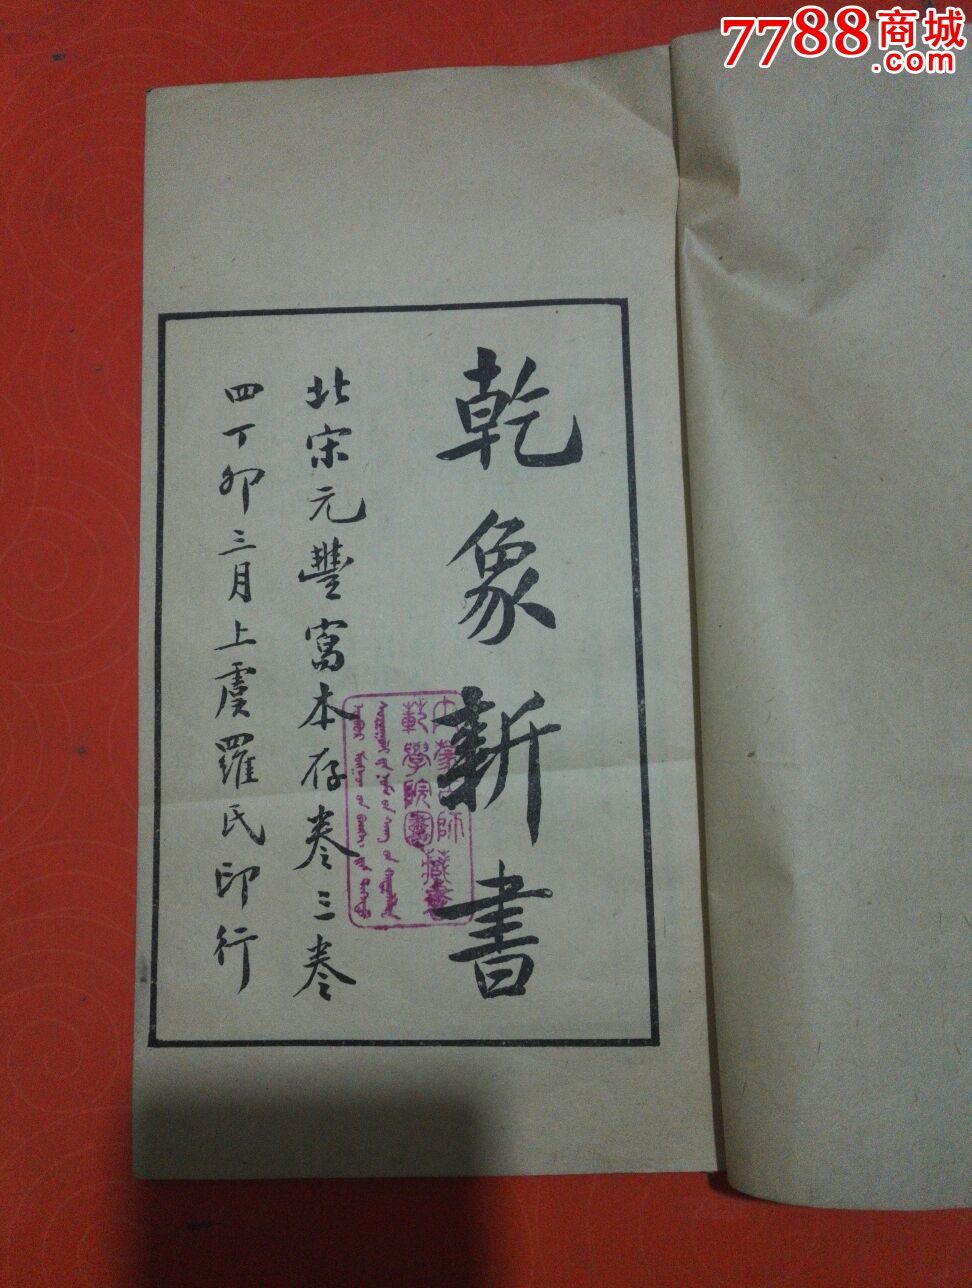 7788商城
.com
乾象新書
北宋元豐寫本存卷三卷
四丁卯三月上虞羅氏印行
內蒙古師
範學院圖
藏書